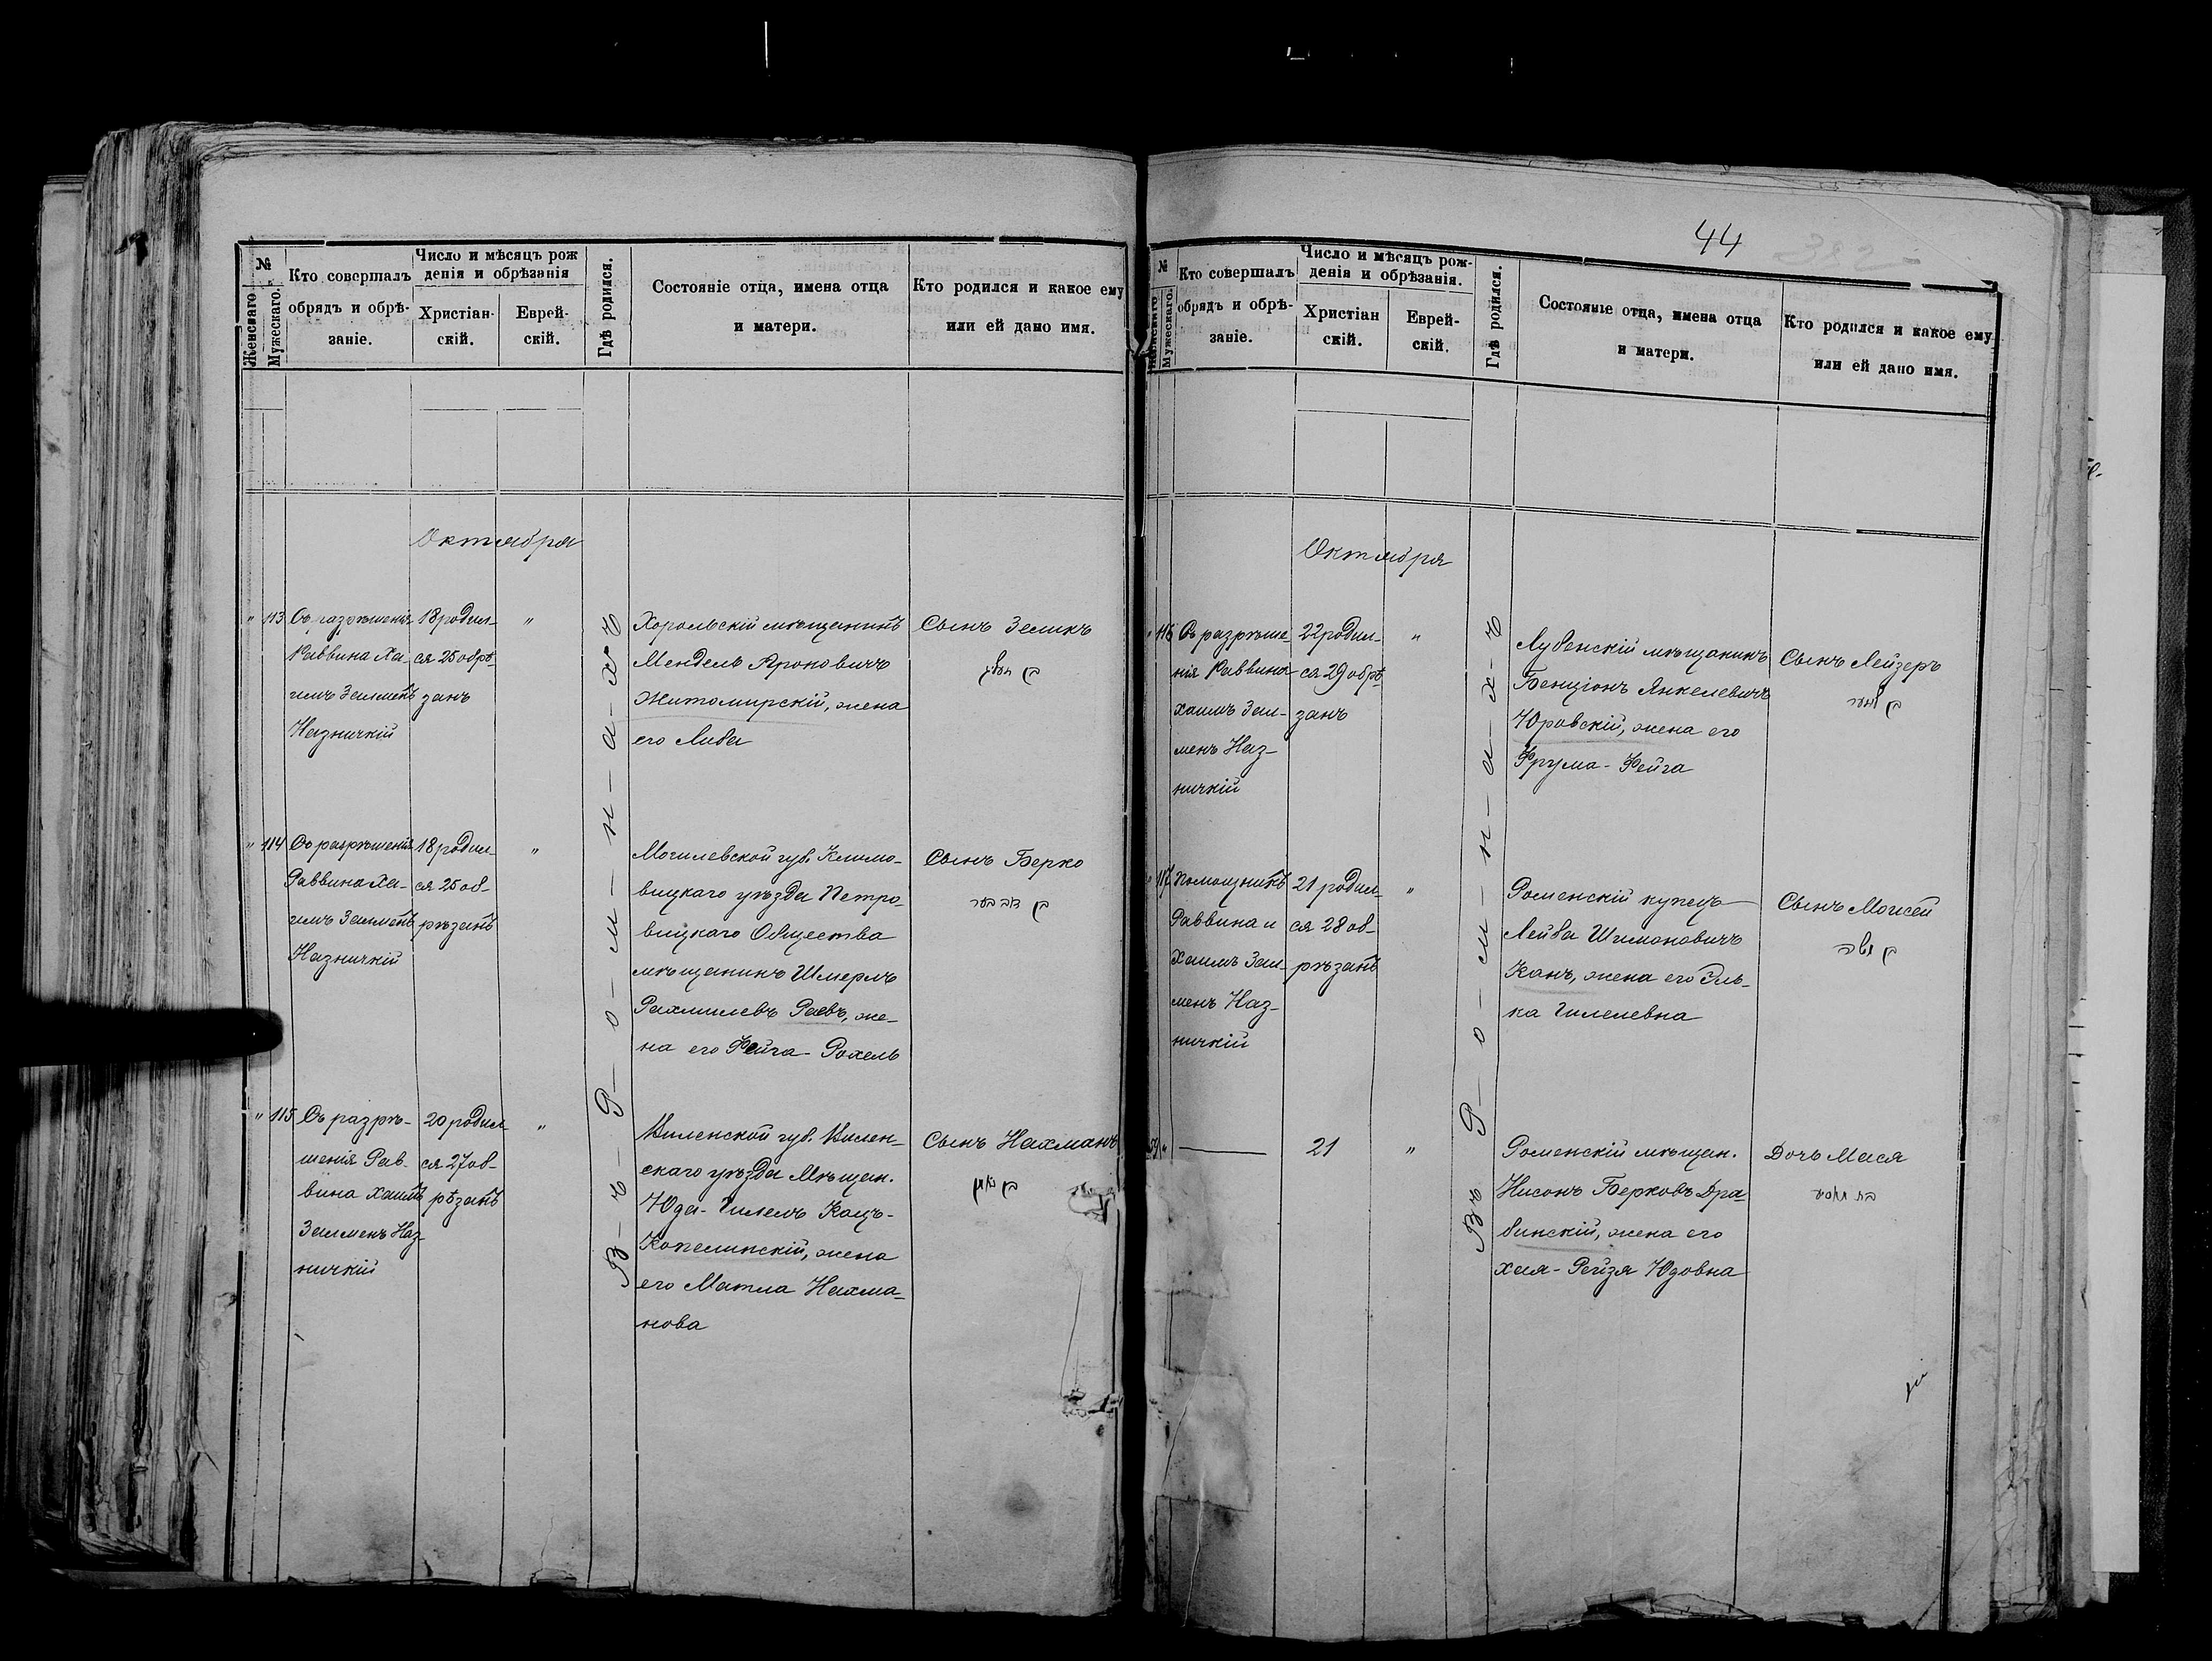 №
Женскаго
Мужескаго.
Кто совершалъ
обрядъ и обрѣ-
заніе.
Число и мѣсяцъ рож
денія и обрѣзанія
Христіан-
скій.
Еврей-
скій.
Гдѣ родился.
Состояніе отца, имена отца
и матери.
Кто родился и какое ему
или ей дано имя.
Октября
В-ъ-Р-о-м-н-а-х-ъ
" 113
Съ разрѣшенія
Раввина Ха-
имъ Залменъ
Назничкій
18 родил-
ся 25 обрѣ-
занъ
"
Хорольскій мѣщанинъ
Мендель Ароновичъ
Житомирскій, жена
его Либа
Сынъ Зеликъ
בן זעליג
" 114
Съ разрѣшенія
Раввина Ха-
имъ Залменъ
Назничкій
18 родил-
ся 25 об-
рѣзанъ
"
Могилевской губ. Климо-
вицкаго уѣзда Петро-
вицкаго Общества
мѣщанинъ Шмерль
Рахмилевъ Раевъ, же-
на его Фейга-Рохель
Сынъ Берко
בן דוב בער
" 115
Съ разрѣ-
шенія Рав-
вина Хаимъ
Залменъ Наз-
ничкій
20 родил
ся 27 об-
рѣзанъ
"
Виленской губ. Вилен-
скаго уѣзда Мѣщан.
Юда-Гилель Кацъ-
Капелинскій, жена
его Матла Нахма-
нова
Сынъ Нахманъ
בן נחמן
44
№
Женскаго
Мужескаго.
Кто совершалъ
обрядъ и обрѣ-
заніе.
Число и мѣсяцъ рож-
денія и обрѣзанія.
Христіан
скій.
Еврей-
скій.
Гдѣ родился.
Состояніе отца, имена отца
и матери.
Кто родился и какое ему
или ей дано имя.
Октября
Въ Р-о-м-н-а-х-ъ
" 116
Съ разрѣше
нія Раввина
Хаимъ Зал-
менъ Наз-
ничкій
22 родил-
ся 29 обрѣ-
занъ
"
Лубенскій мѣщанинъ
Бенціонъ Янкелевичъ
Юровскій, жена его
Фрума-Фейга
Сынъ Лейзеръ
בן לייזער
" 117
Помощникъ
Раввина и
Хаимъ Зал-
менъ Наз-
ничкій
21 родил-
ся 28 об-
рѣзанъ
"
Роменскій купецъ
Лейба Шимоновичъ
Канъ, жена его Эль-
ка Гилелевна
Сынъ Моисей
בן משה
"
21
"
Роменскій мѣщан.
Нисонъ Берковъ Дра-
бинскій, жена его
Хая-Рейзя Юдовна
Дочь Мася